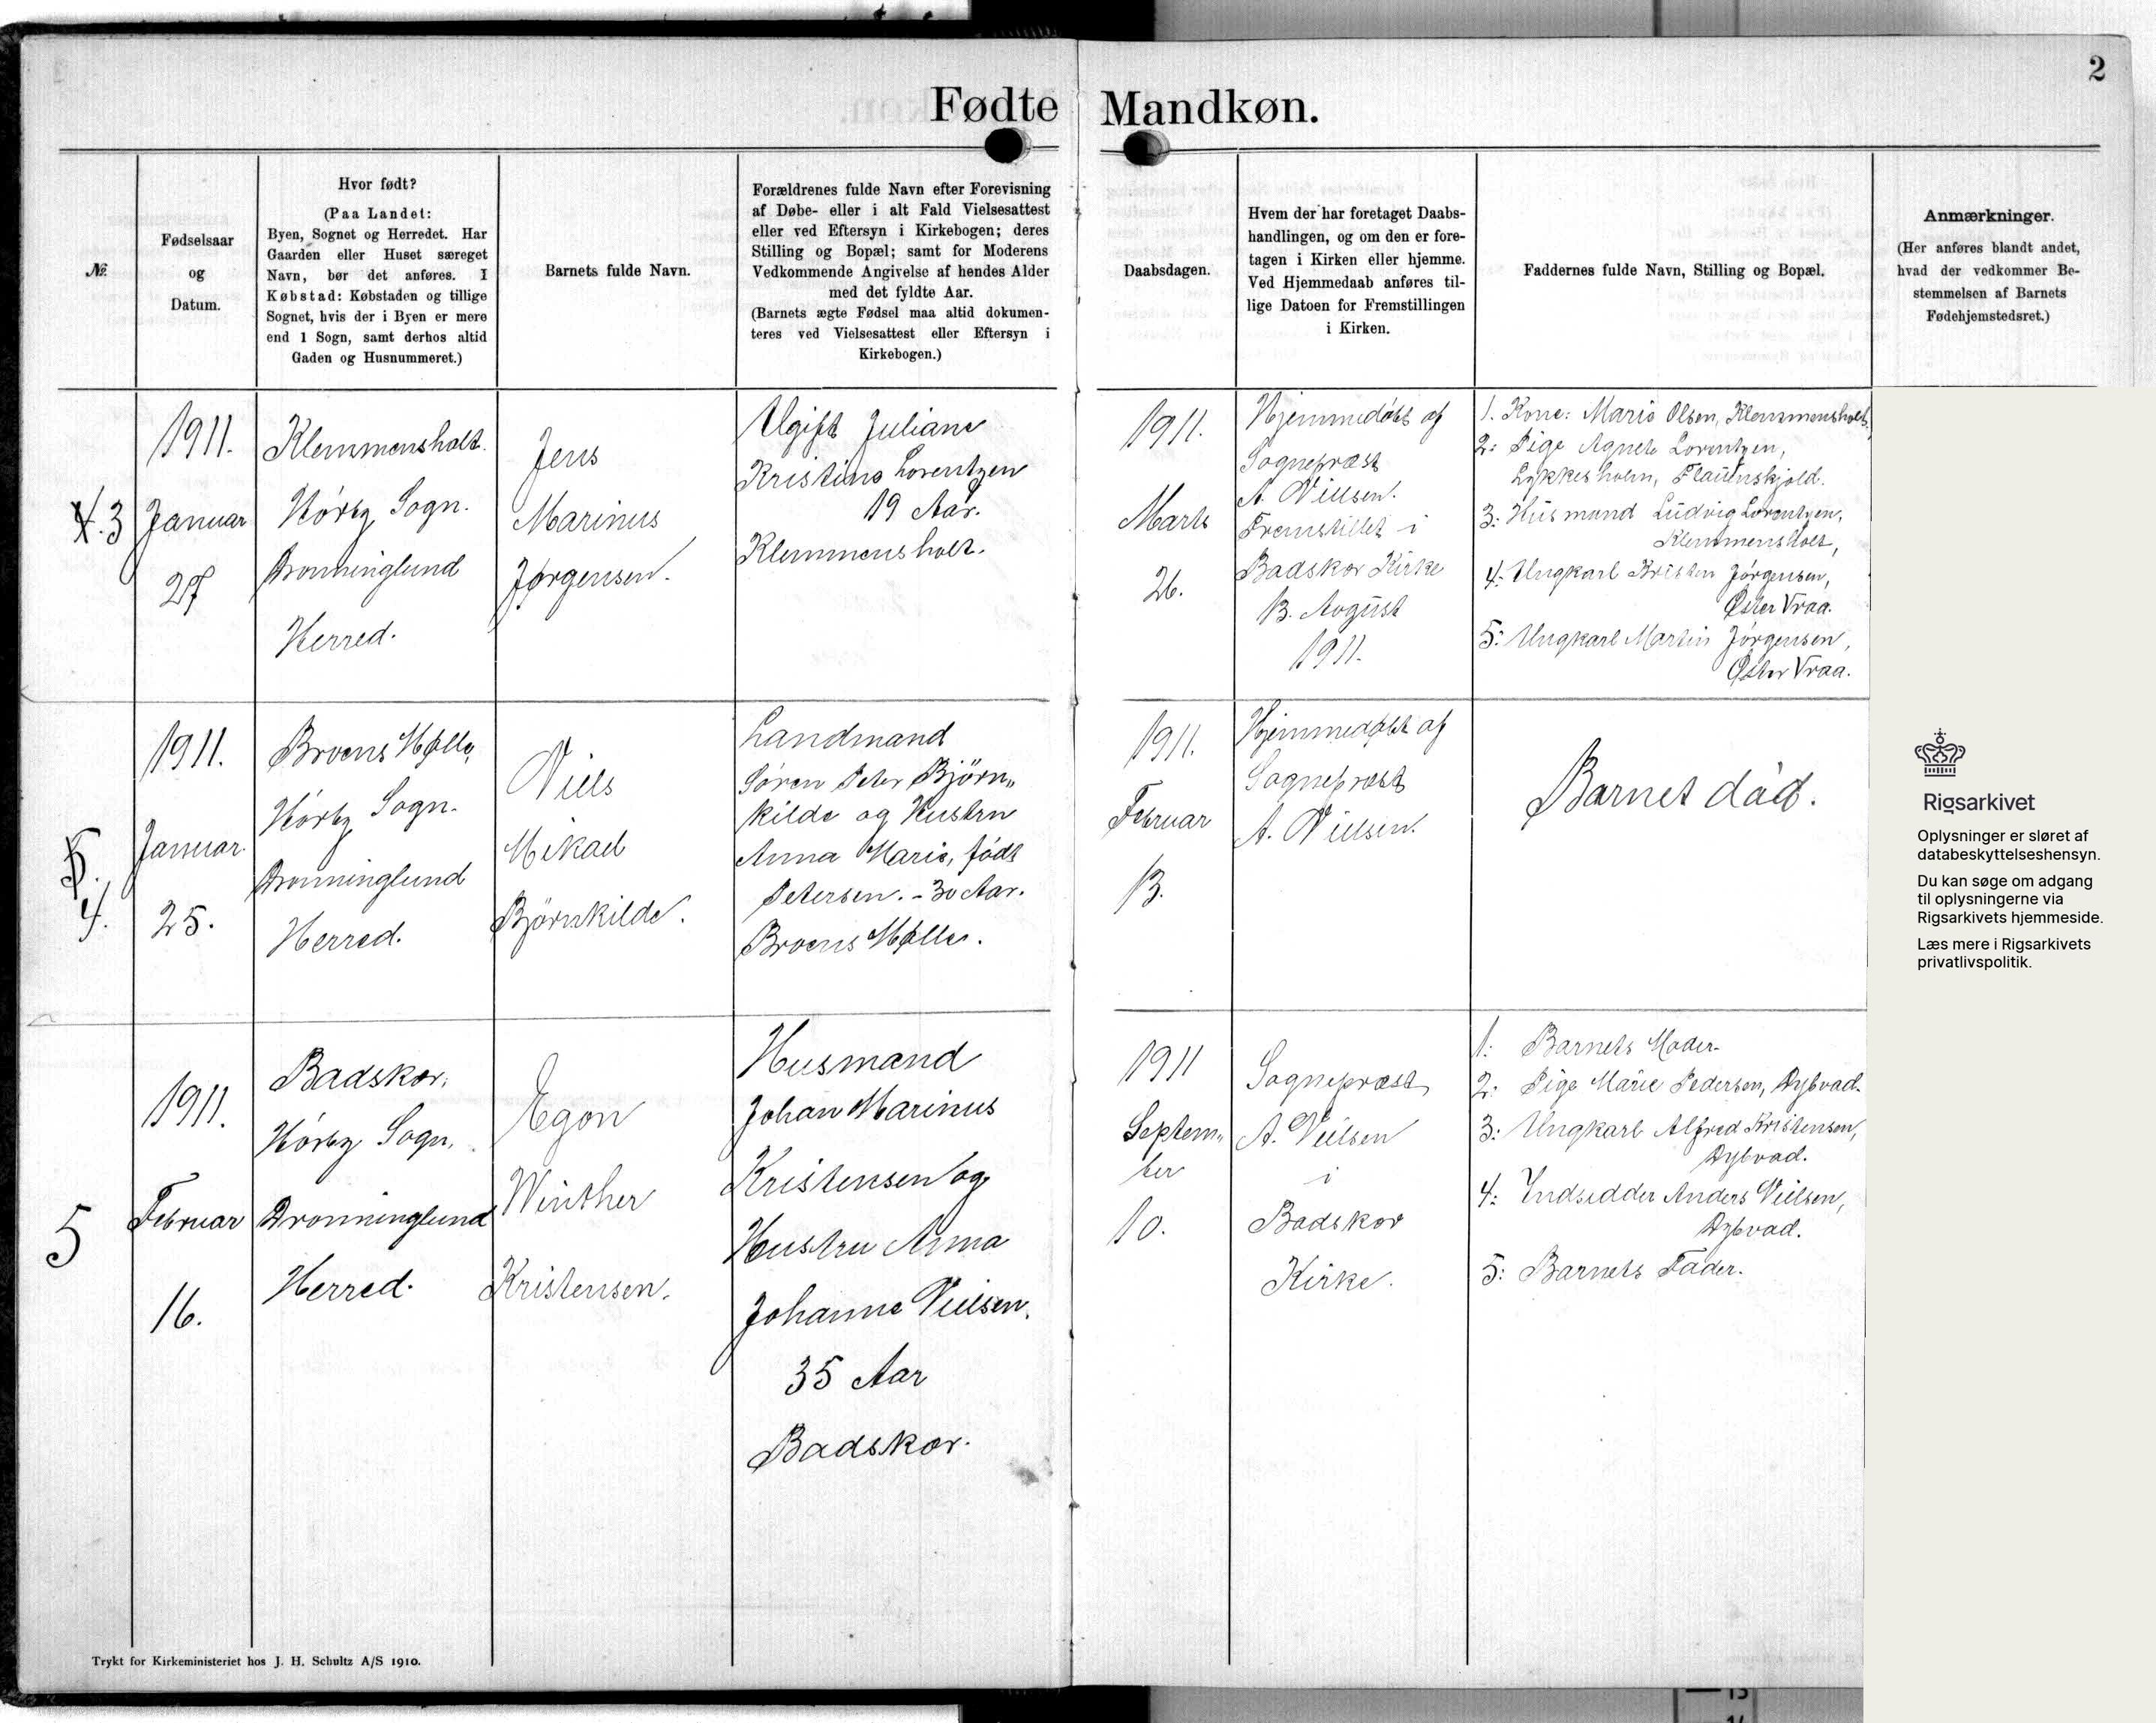 2
Fødte Mandkøn.
№
Fødselsaar
og
Datum.
Hvor født?
(Paa Landet:
Byen, Sognet og Herredet. Har
Gaarden eller Huset særeget
Navn, bør det anføres. I
Købstad: Købstaden og tillige
Sognet, hvis der i Byen er mere
end 1 Sogn, samt derhos altid
Gaden og Husnummeret.)
Barnets fulde Navn.
Forældrenes fulde Navn efter Forevisning
af Døbe- eller i alt Fald Vielsesattest
eller ved Eftersyn i Kirkebogen; deres
Stilling og Bopæl; samt for Moderens
Vedkommende Angivelse af hendes Alder
med det fyldte Aar.
(Barnets ægte Fødsel maa altid dokumen-
teres ved Vielsesattest eller Eftersyn i
Kirkebogen.)
Daabsdagen.
Hvem der har foretaget Daabs-
handlingen, og om den er fore-
tagen i Kirken eller hjemme.
Ved Hjemmedaab anføres til-
lige Datoen for Fremstillingen
i Kirken.
Faddernes fulde Navn, Stilling og Bopæl.
Anmærkninger.
(Her anføres blandt andet,
hvad der vedkommer Be-
stemmelsen af Barnets
Fødehjemstedsret.)
4. 3
1911.
Januar
Klemmensholt.
Hörby Sogn.
Dronninglund
Herred.
Jens
Marinus
Jørgensen.
Ugift Juliane
Kristine Lorentzen
19 Aar.
Klemmensholt.
1911.
Marts
26.
Hjemmedöbt af
Sognepræst
A. Nielsen.
Fremstillet i
Badskær Kirke
13. August
1911.
1. Kone: Marie Olsen, Klemmensholt,
2: Pige Agnete Lorentzen,
Lykkesholm, Flauenskjold.
3: Husmand Ludvig Lorentzen,
Klemmensholt,
4: Ungkarl Kristen Jörgensen,
Øster Vraa.
5: Ungkarl Martin Jörgensen,
Øster Vraa.
5.
4.
1911.
Januar.
25.
Broens Mølle,
Hörby Sogn.
Dronninglund
Herred.
Niels
Mikael
Björnkilde.
Landmand
Sören Peter Björn„
kilde og Hustru
Anna Marie, födt
Petersen. - 30 Aar.
Broens Mølle.
1911.
Februar
13.
Hjemmedøbt af
Sognepræst
A. Nielsen.
Barnet död.
5
1911.
Februar
16.
Badskær,
Hörby Sogn,
Dronninglund
Herred.
Egon
Winther
Kristensen.
Husmand
Johan Marinus
Kristensen og
Hustru Anna
Johanne Nielsen.
35 Aar
Badskær.
1911
Septem„
ber
10.
Sognepræst
A. Nielsen
i
Badskær
Kirke.
1: Barnets Moder.
2: Pige Marie Pedersen, Dybvad.
3: Ungkarl Alfred Kristensen,
Dybvad.
4: Indsidder Anders Nielsen,
Dybvad.
5: Barnets Fader.
Rigsarkivet
Oplysninger er sløret af
databeskyttelseshensyn.
Du kan søge om adgang
til oplysningerne via
Rigsarkivets hjemmeside.
Læs mere i Rigsarkivets
privatlivspolitik.
Trykt for Kirkeministeriet hos J. H. Schultz A/S 1910.